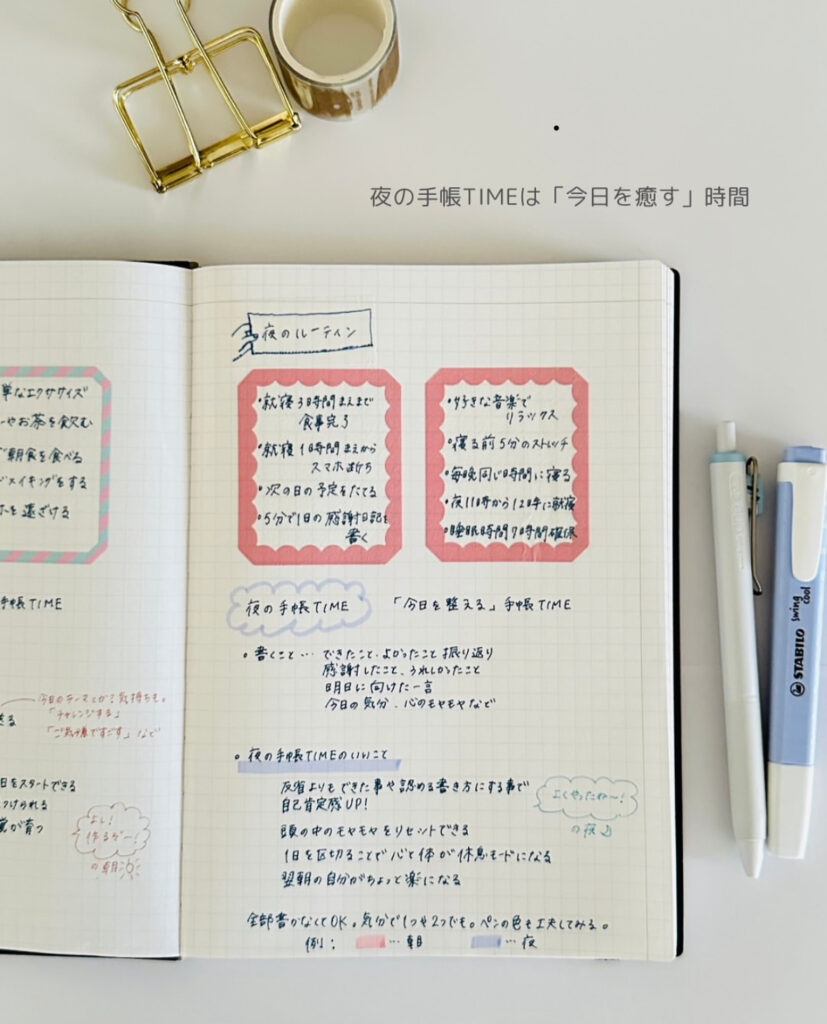 夜の手帳TIMEは「今日を癒す」時間
単なエクササイズ
ーやお茶を飲む
朝食を食べる
ドメイキングをする
ホを遠ざける
手帳TIME
今日のテーマとか?気持ちも。
「チャレンジする」
「ご気嫌ですごす」など
日をスタートできる
つけられる
覚が育つ
よし!
作るぞ〜!
の朝
夜のルーティン
・就寝3時間まえまで
食事完了
・就寝1時間まえから
スマホ断ち
・次の日の予定をたてる
・5分で1日の感謝日記を
書く
・好きな音楽で
リラックス
・寝る前5分のストレッチ
・毎晩同じ時間に寝る
・夜11時から12時に就寝
・睡眠時間7時間確保
夜の手帳TIME 「今日を整える」手帳TIME
・書くこと… できたこと、よかったこと振り返り
感謝したこと、うれしかったこと
明日に向けた一言
今日の気分、心のモヤモヤなど
・夜の手帳TIMEのいいこと
反省よりもできた事や認める書き方にする事で
自己肯定感UP!
頭の中のモヤモヤをリセットできる
1日を区切ることで心と体が休息モードになる
翌朝の自分がちょっと楽になる
よくやったね〜!
の夜♪
全部書かなくてOK。気分で1つや2つでも。ペンの色も工夫してみる。
例: …朝 …夜
STABILO swing cool